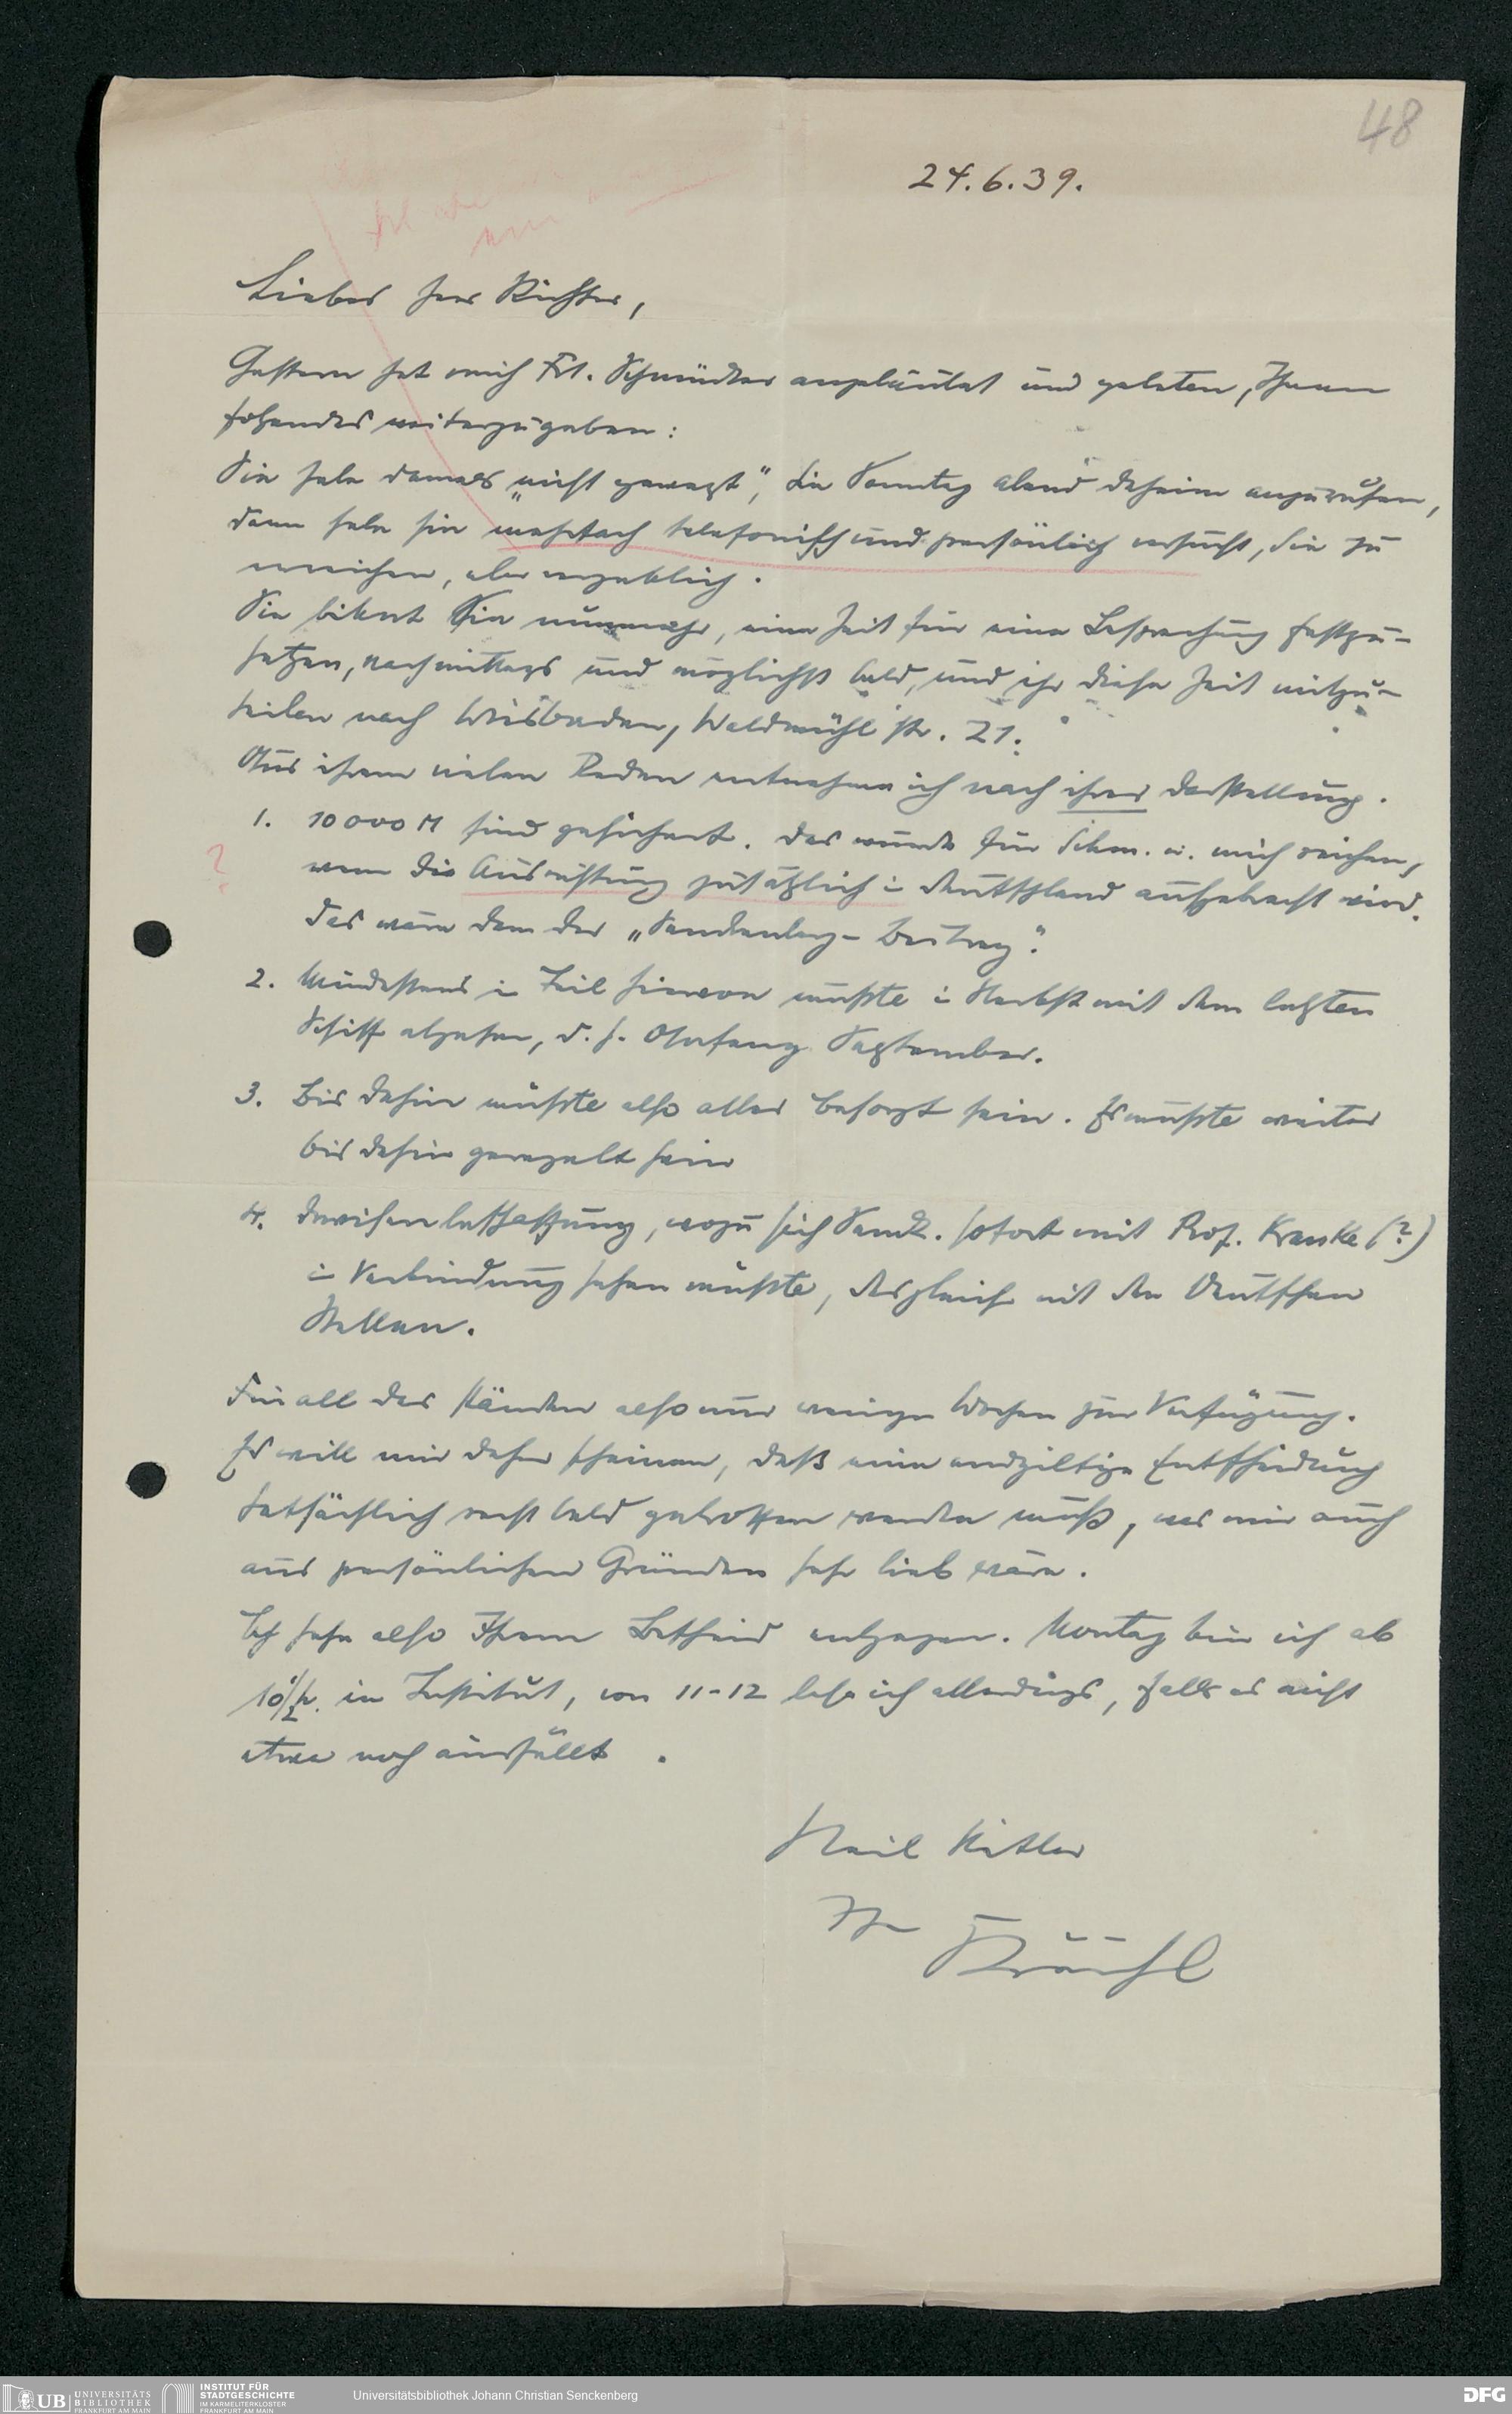 48
24.6.39.
Lieber Herr Richter,
Gestern hat mich Frl. Schmücker angeläutet und gebeten, Ihnen
folgendes weiterzugeben:
Sie habe damals „nicht gewagt“, Sie Sonntag abend daheim anzurufen,
dann habe sie mehrfach telefonisch und persönlich versucht, Sie zu
erreichen, aber vergeblich.
Sie bittet Sie nunmehr, eine Zeit für eine Besprechung festzu-
setzen, nachmittags und möglichst bald, und ihr diese Zeit mitzu-
teilen nach Wiesbaden, Waldmühlstr. 21.
Aus ihrem vielen Reden entnehme ich nach ihrer Darstellung.
1. 10 000 M sind gesichert. Das würde für Schm. u. mich reichen,
wenn die Ausrüstung zusätzlich i Deutschland aufgebracht wird.
Das wäre dann der „Senckenberg-Beitrag“.
2. Mindestens i Teil hiervon müsste i Herbst mit dem letzten
Schiff abgehen, d. h. Anfang September.
3. Bis dahin müsste also alles besorgt sein. Es müsste weiter
bis dahin geregelt sein
4. Devisenbeschaffung, wozu sich Senck. sofort mit Prof. (?)
i Verbindung setzen müsste, desgleich mit den Deutschen
Stellen.
Für all das ständen also nur wenige Wochen zur Verfügung.
Es will mir daher scheinen, daß eine endgiltige Entscheidung
tatsächlich recht bald getroffen werden muß, was mir auch
aus persönlichen Gründen sehr lieb wäre.
Ich sehe also Ihrem Bescheid entgegen. Montag bin ich ab
10 1/2 h. im Institut, von 11-12 lese ich allerdings, falls es nicht
etwa noch ausfällt.
Heil Hitler
Ihr Kräusel
UB UNIVERSITÄTS
BIBLIOTHEK
FRANKFURT AM MAIN
INSTITUT FÜR
STADTGESCHICHTE
IM KARMELITERKLOSTER
FRANKFURT AM MAIN
Universitätsbibliothek Johann Christian Senckenberg
DFG